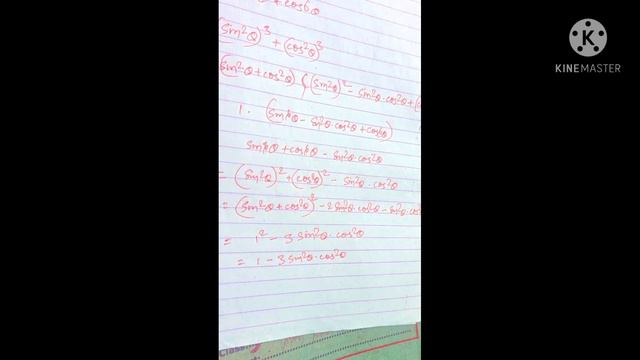 + cos6θ
(sin²θ)³ + (cos²θ)³
(sin²θ + cos²θ) ((sin²θ)² − sin²θ·cos²θ + (c
1 · (sin⁴θ − sin²θ·cos²θ + cos⁴θ)
sin⁴θ + cos⁴θ − sin²θ·cos²θ
= (sin²θ)² + (cos²θ)² − sin²θ·cos²θ
= (sin²θ + cos²θ)² − 2 sin²θ·cos²θ − sin²θ·cos²
= 1² − 3 sin²θ·cos²θ
= 1 − 3 sin²θ·cos²θ
KINEMASTER